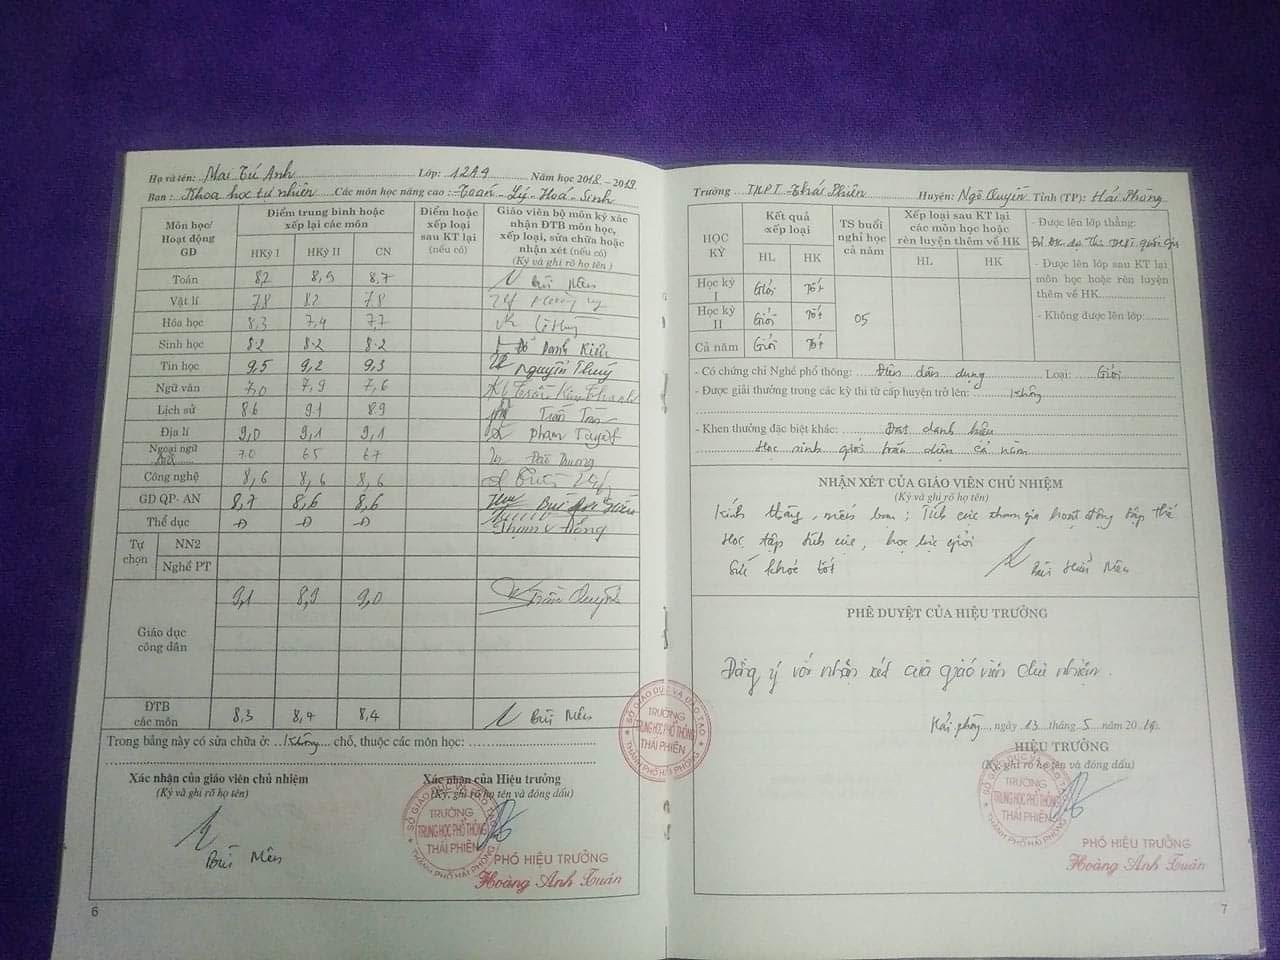 Họ và tên: Mai Tú Anh Lớp: 12A9 Năm học 2018 - 2019
Ban: Khoa học tự nhiên Các môn học nâng cao: Toán - Lý - Hoá - Sinh
Môn học/ Hoạt động GD
Điểm trung bình hoặc xếp lại các môn
HKỳ I HKỳ II CN
Điểm hoặc xếp loại sau KT lại (nếu có)
Giáo viên bộ môn ký xác nhận ĐTB môn học, xếp loại, sửa chữa hoặc nhận xét (nếu có)
(Ký và ghi rõ họ tên)
Toán 8,2 8,9 8,7 Bùi Mên
Vật lí 7,8 8,2 7,8
Hóa học 8,3 7,4 7,7
Sinh học 8.2 8.2 8.2 Đỗ Danh Kiên
Tin học 9,5 9,2 9,3 Nguyễn Thuý
Ngữ văn 7,0 7,9 7,6 Trần Kim
Lịch sử 8.6 9.1 8.9 Trần
Địa lí 9,0 9,1 9,1 Phạm
Ngoại ngữ 7.0 6.5 6.7
Công nghệ 8,6 8,6 8,6
GD QP- AN 8,7 8,6 8,6 Bùi
Thể dục Đ Đ Đ Phạm V Đồng
Tự chọn
NN2
Nghề PT
Giáo dục công dân 9,1 8,9 9,0 Trần Quỳnh
ĐTB các môn 8,3 8,4 8,4 Bùi Mên
Trong bảng này có sửa chữa ở: Không chỗ, thuộc các môn học:
Xác nhận của giáo viên chủ nhiệm
(Ký và ghi rõ họ tên)
Bùi Mên
Xác nhận của Hiệu trưởng
(Ký, ghi rõ họ tên và đóng dấu)
SỞ GIÁO DỤC VÀ ĐÀO TẠO
TRƯỜNG
TRUNG HỌC PHỔ THÔNG
THÁI PHIÊN
THÀNH PHỐ HẢI PHÒNG
PHÓ HIỆU TRƯỞNG
Hoàng Anh Tuấn
6
SỞ GIÁO DỤC VÀ ĐÀO TẠO
TRƯỜNG
TRUNG HỌC PHỔ THÔNG
THÁI PHIÊN
THÀNH PHỐ HẢI PHÒNG
Trường THPT Thái Phiên Huyện: Ngô Quyền Tỉnh (TP): Hải Phòng
HỌC KỲ
Kết quả xếp loại
HL HK
TS buổi nghỉ học cả năm
Xếp loại sau KT lại các môn học hoặc rèn luyện thêm về HK
HL HK
Học kỳ I Giỏi Tốt
Học kỳ II Giỏi Tốt 05
Cả năm Giỏi Tốt
- Được lên lớp thẳng:
Đủ ĐK dự Thi THPT Quốc gia
- Được lên lớp sau KT lại môn học hoặc rèn luyện thêm về HK
- Không được lên lớp:
- Có chứng chỉ Nghề phổ thông: Điện dân dụng Loại: Giỏi
- Được giải thưởng trong các kỳ thi từ cấp huyện trở lên: Không
- Khen thưởng đặc biệt khác: Đạt danh hiệu
Học sinh giỏi toàn diện cả năm
NHẬN XÉT CỦA GIÁO VIÊN CHỦ NHIỆM
(Ký và ghi rõ họ tên)
Kính thầy, mến bạn; Tích cực tham gia hoạt động tập thể
Học tập tích cực, học lực giỏi
Sức khoẻ tốt
Bùi Mên
PHÊ DUYỆT CỦA HIỆU TRƯỞNG
Đồng ý với nhận xét của giáo viên chủ nhiệm.
Hải phòng, ngày 23 tháng 5 năm 2019
HIỆU TRƯỞNG
(Ký, ghi rõ họ tên và đóng dấu)
SỞ GIÁO DỤC VÀ ĐÀO TẠO
TRƯỜNG
TRUNG HỌC PHỔ THÔNG
THÁI PHIÊN
THÀNH PHỐ HẢI PHÒNG
PHÓ HIỆU TRƯỞNG
Hoàng Anh Tuấn
7